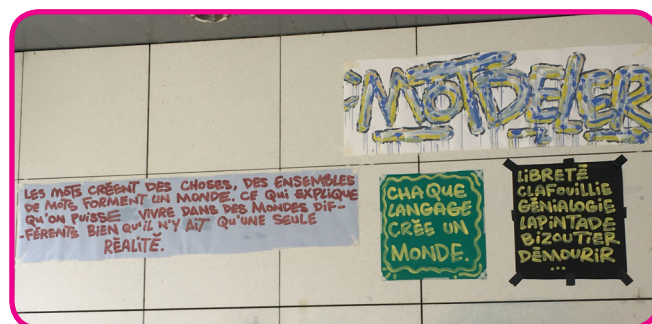 MOTDELER
LES MOTS CRÉENT DES CHOSES, DES ENSEMBLES
DE MOTS FORMENT UN MONDE. CE QUI EXPLIQUE
QU'ON PUISSE VIVRE DANS DES MONDES DIF-
-FÉRENTS BIEN QU'IL N'Y AIT QU'UNE SEULE
RÉALITÉ.
CHAQUE
LANGAGE
CRÉE UN
MONDE.
LIBRETÉ
CLAFOUILLIE
GÉNIALOGIE
LAPINTADE
BIZOUTIER
DÉMOURIR
...